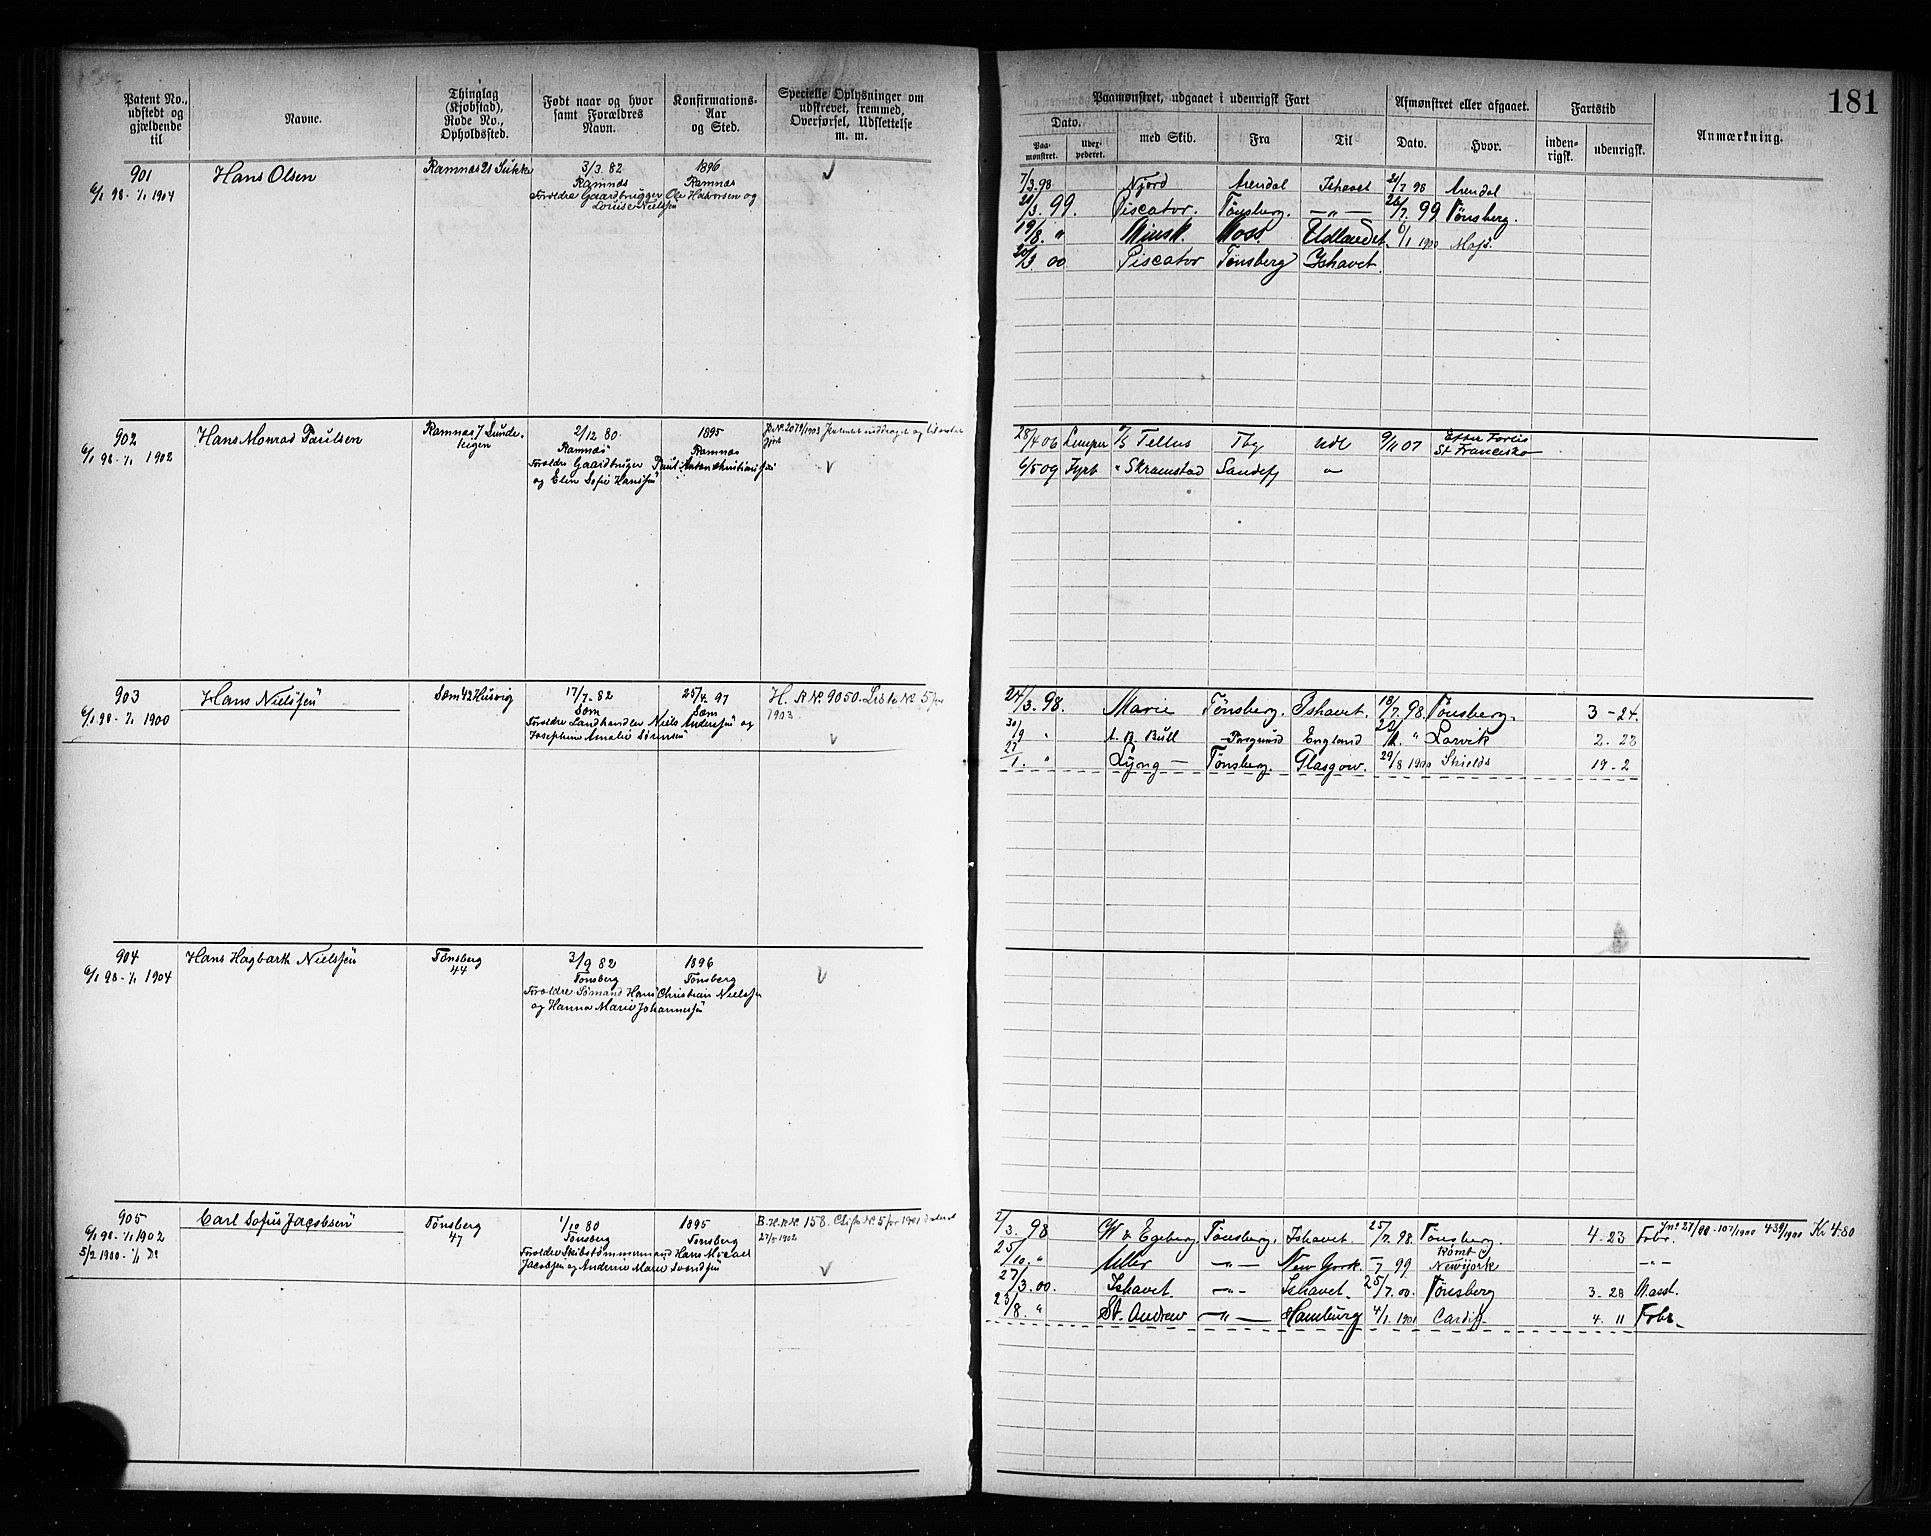 181
Patent No., udstedt og gjældende til
Navne.
Thinglag (Kjøbstad), Rode No., Opholdssted.
Født naar og hvor samt Forældres Navn.
Konfirmations-Aar og Sted.
Specielle Oplysninger om udskrevet, fremmed, Overførsel, Udslettelse m. m.
Paamønstret, udgaaet i udenrigsk Fart
Afmønstret eller afgaaet.
Fartstid
Anmærkning.
Dato.
med Skib.
Fra
Til
Dato.
Hvor.
inden-rigsk.
udenrigsk.
Paa-mønstret.
Udex-pederet.
901
Hans Olsen
Ramnæs 21 Sukke
3/3. 82
1896
6/1 98 - 1/1 1904
Ramnæs
Ramnæs
Forældre Gaardbrugger Ole Halvorsen og
Louise Nielsen
7/3. 98 Njord Arendal Ishavet 21/7 98 Arendal
21/3. 99. Piscator. Tønsberg. —„— 26/7. 99 Tønsberg.
19/8. „ Minsk. Moss. Udlandet. 6/1 1900 Moss.
20/3. 00 Piscator Tønsberg Ishavet.
902
Hans Monrad Paulsen
Ramnæs 7 Sunde-
teigen
2/12 80.
1895
6/1 98 - 1/1 1902
Ramnæs
Ramnæs
Forældre Gaardbruger Paul Anton Christiansen
og Elen Sofie Hansen
28/4 06 Tellus Tby Udl 9/11 07
St Francisko
6/5 09 Fyrb „ Skramstad Sandefj „
903
Hans Nielsen
Sem 42 Husvig
17/7. 82
25/4. 97
H. R No. 9050. Liste No 5 for
1903.
6/1 98 - 1/1 1900
Sem
Sem
Forældre Landhandler Niels Andersen og
Josephine Amalie Sørensen
24/3. 98. Marie Tønsberg. Ishavet. 18/7. 98. Tønsberg. 3 - 24.
30/9 „ A. B. Bull Porsgrund England „ Larvik 2. 23
27/1. „ Lyng — Tønsberg. Glasgow. 29/8 1900 Shields 19 - 2
904
Hans Hagbarth Nielsen
Tønsberg
44
3/9 82
1896
6/1 98 - 1/1 1904
Tønsberg
Tønsberg
Forældre Sømand Hans Christian Nielsen
og Hanna Marie Johannesen
905
Carl Sofus Jacobsen
Tønsberg
47
1/10 80
1895
6/1 98 - 1/1 1902
5/2 1900 - 1/1 Do
Tønsberg
Tønsberg
Forældre Skibstømmermand Hans Michael
Jacobsen og Anderine Marie Svendsen
B. H. R No. 158. Liste No 5 for 1901
2/3. 98 W v Egeberg Tønsberg, Ishavet. 25/7. 98. Tønsberg. 4. 23 Frbr. Kr 4.80
25/10. „ Uller —„— New York. 99 Rømt Newyork —„—
27/3. 00. Ishavet. —„— Ishavet. 25/7. 00. Tønsberg 3. 28 Mandt.
23/8. „ St. Andrew —„— Hamburg 4/1. 1901 Cardiff 4. 11 Frbr.